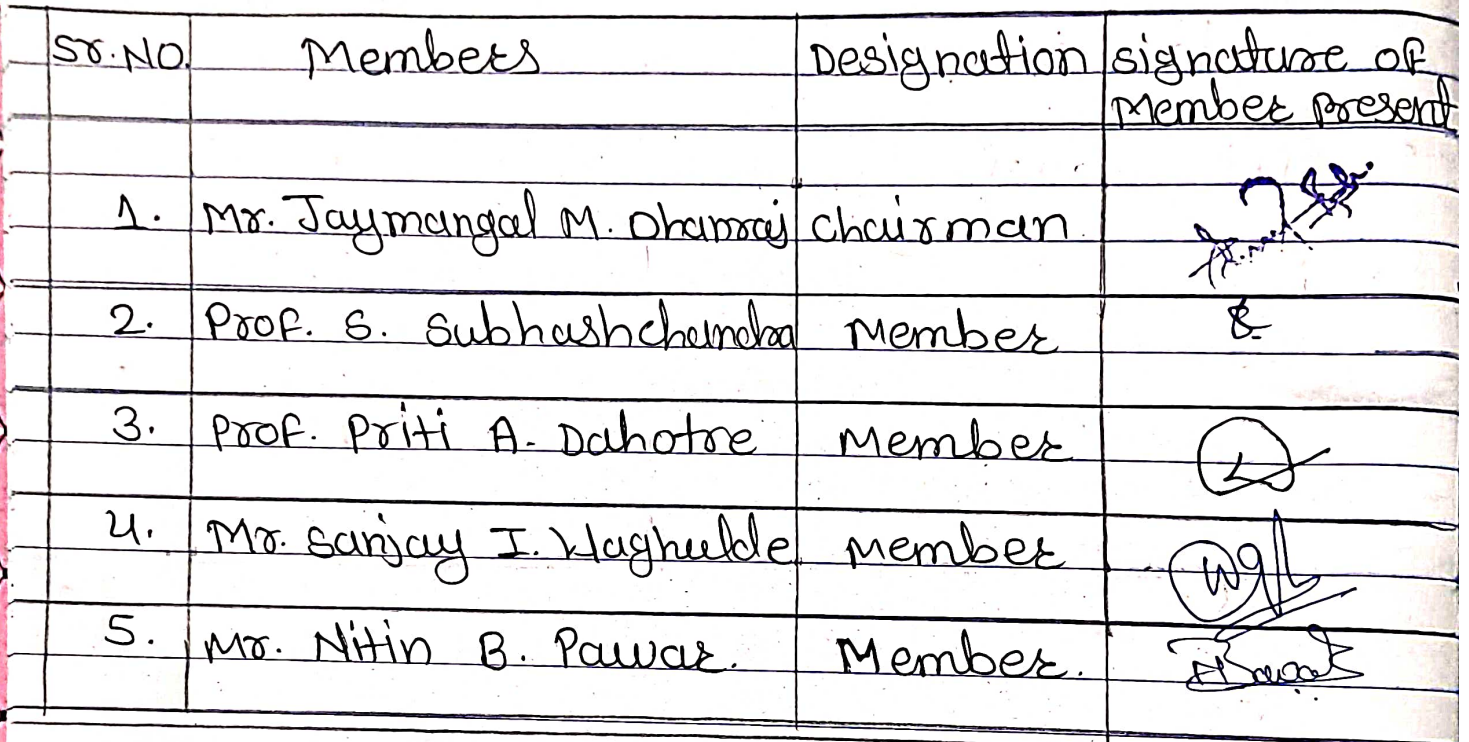 Sr.No. Members Designation signature of
Member present
1. Mr. Jaymangal M. Dhamraj Chairman
2. Prof. S. Subhashchandra Member
3. Prof. Priti A. Dahotre Member
4. Mr. Sanjay I. Waghulde Member
5. Mr. Nitin B. Pawar. Member.